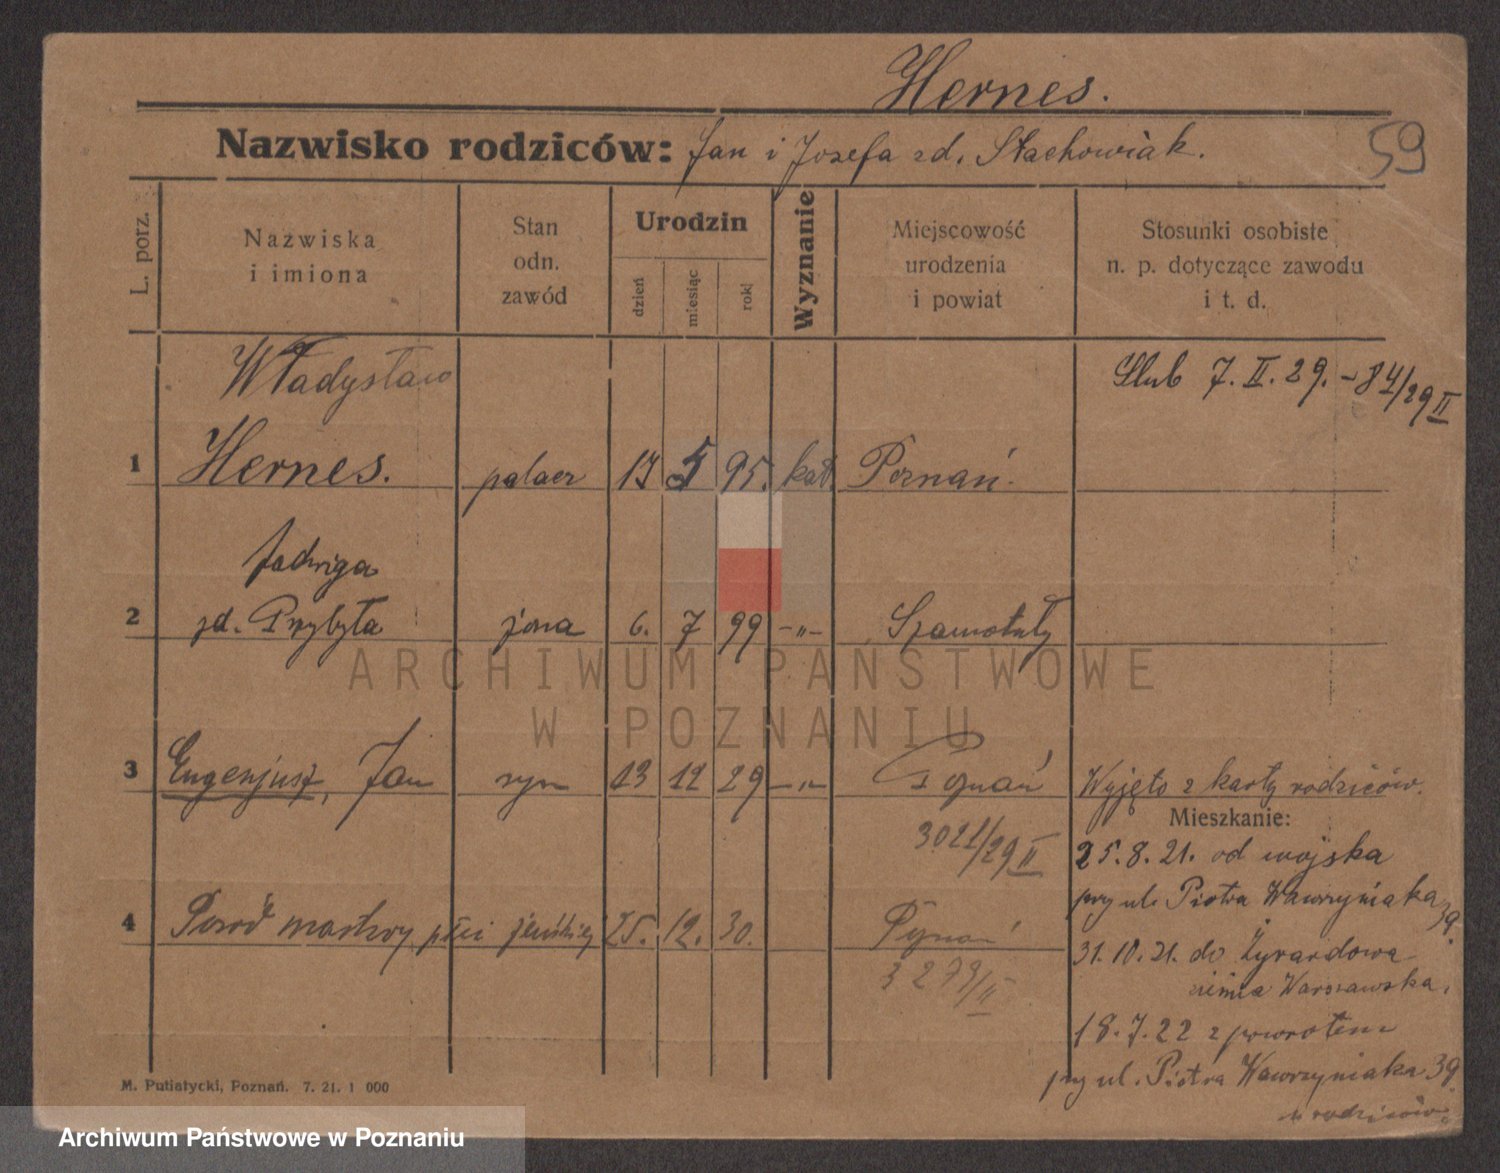 Hernes.
Nazwisko rodziców: Jan i Józefa zd. Stachowiak.
59
L. porz.
Nazwiska
i imiona
Stan
odn.
zawód
Urodzin
dzień
miesiąc
rok
Wyznanie
Miejscowość
urodzenia
i powiat
Stosunki osobiste
n. p. dotyczące zawodu
i t. d.
Władysław
Ślub 7. II. 29. - 84/29 II
1 Hernes. palacz 17 5 95. kat. Poznań.
Jadwiga
2 zd. Przybyła żona 6. 7 99 -"- Szamotuły
ARCHIWUM PAŃSTWOWE
W POZNANIU
3 Eugenjusz, Jan syn 13 12 29 -"- Poznań Wyjęto z karty rodziców.
3021/29 II
Mieszkanie:
25.8.21. od wojska
przy ul. Piotra Wawrzyniaka 39.
4 Poród martwy płci żeńskiej 25. 12. 30. Poznań
3273/II
31.10.21. do Żyrardowa
ziemia Warszawska.
18.7.22 z powrotem
przy ul. Piotra Wawrzyniaka 39.
u rodziców
M. Putiatycki, Poznań. 7. 21. 1 000
Archiwum Państwowe w Poznaniu